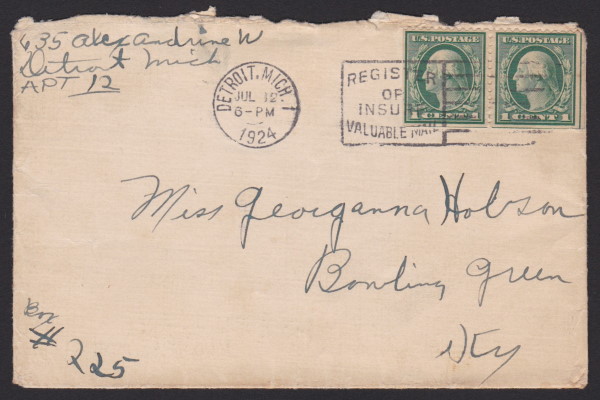 635 Alexandrine W
Detroit Mich
APT 12
DETROIT, MICH. 1
JUL 12
6-PM
1924
REGISTER
OF
INSURE
VALUABLE MAIL
U.S. POSTAGE
1 CENTS 1
U.S. POSTAGE
1 CENTS 1
Miss Georganna Hobson
Bowling Green
Ky
Box
# 225